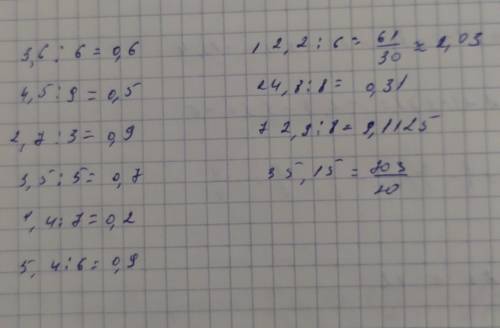 3,6 : 6 = 0,6
4,5 : 9 = 0,5
2,7 : 3 = 0,9
3,5 : 5 = 0,7
1,4 : 7 = 0,2
5,4 : 6 = 0,9
12,2 : 6 = 61/30 ≈ 2,03
24,8 : 8 = 0,31
72,9 : 8 = 9,1125
35,15 = 703/20